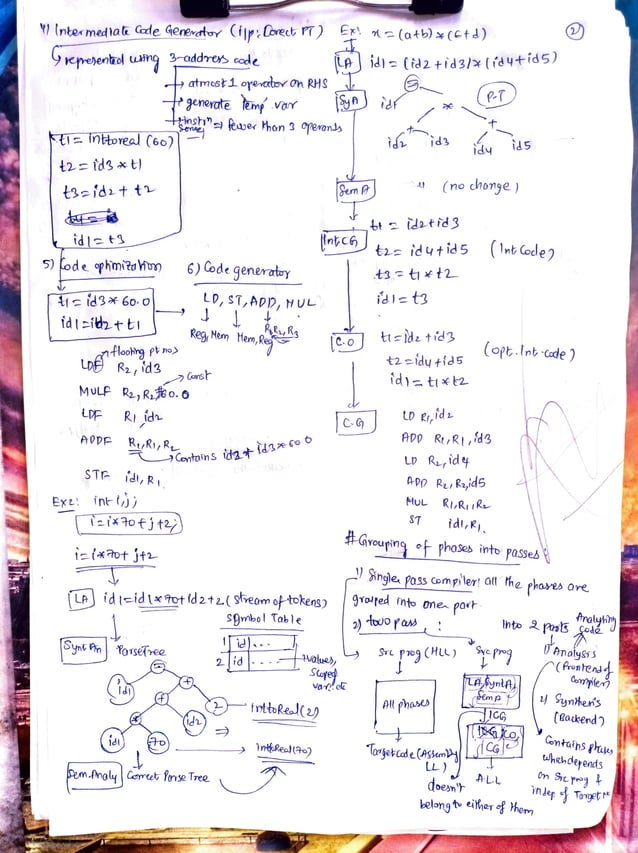 4) Intermediate Code Generator (i/p: Corect PT)
represented using 3-address code
→ atmost 1 operator on RHS
→ generate Temp var
→ instrn sense ⇒ fewer than 3 operands
t1 = inttoreal (60)
t2 = id3 * t1
t3 = id2 + t2
id1 = t3
5) Code optimization
t1 = id3 * 60.0
id1 = id2 + t1
6) Code generator
LD, ST, ADD, MUL
Reg, Mem Mem, Reg R1, R2, R3
floating pt nos
LDF R2, id3
const
MULF R2, R2, #60.0
LDF R1, id2
ADDF R1, R1, R2
Contains id2 + id3 * 60.0
STF id1, R1
Ex2: int i, j;
i = i*70 + j + 2;
i = i*70 + j + 2
LA id1 = id1 * 70 + id2 + 2 (stream of tokens)
Symbol Table
1 id ...
2 id ....
values, scope
Synt An Parse Tree
=
id1 +
+ 2
* id2
id1 70
inttoReal (2)
inttoReal (70)
Sem. Analy Correct Parse Tree
2
Ex: x = (a+b) * (c+d)
LA id1 = (id2 + id3) * (id4 + id5)
SyA
P-T
=
id1 *
+ +
id2 id3 id4 id5
Sem A " (no change)
Int CG
t1 = id2 + id3
t2 = id4 + id5 (Int Code)
t3 = t1 * t2
id1 = t3
C.O
t1 = id2 + id3
t2 = id4 + id5 (opt. Int. code)
id1 = t1 * t2
C.G
LD R1, id2
ADD R1, R1, id3
LD R2, id4
ADD R2, R2, id5
MUL R1, R1, R2
ST id1, R1
# Grouping of phases into passes:
1) Single pass compiler: all the phases are
grouped into one part
2) two pass : Into 2 parts
Src prog (HLL)
All phases
Target code (Assembly LL)
Src prog
LA, SyntA, Sem A
ICG
CO,
CG
ALL
doesn't
belong to either of them
Analyting code
1) Analysis
(Frontend of
compiler)
2) Synthesis
(Backend)
Contains phases
which depends
on Src prog &
indep of Target